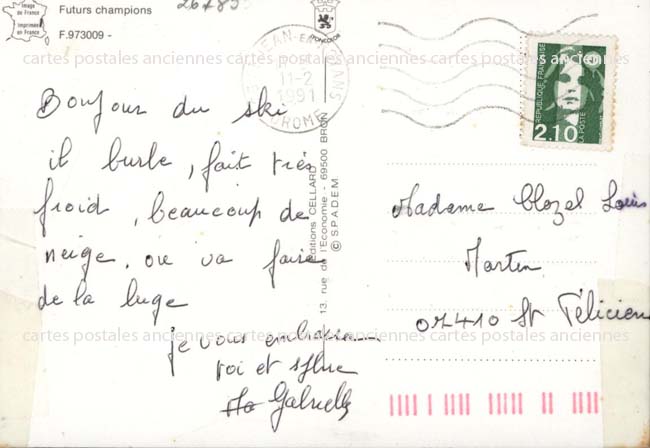 Image de France
Imprimé en France
Futurs champions
F.973009 -
26785
cartes postales anciennes cartes postales anciennes cartes postales anciennes
JEAN-EN-ROYANS
11-2
1991
DROME
REPUBLIQUE FRANÇAISE
LA POSTE
2.10
Bonjour du ski
il burle, fait très
froid, beaucoup de
neige. on va faire
de la luge
je vous embrasse
toi et
Gabrielle
Editions CELLARD
13, rue de l'Economie - 69500 BRON
© S.P.A.D.E.M.
Madame Clozel Louis
Martin
07410 St Félicien
cartes postales anciennes cartes postales anciennes cartes postales anciennes